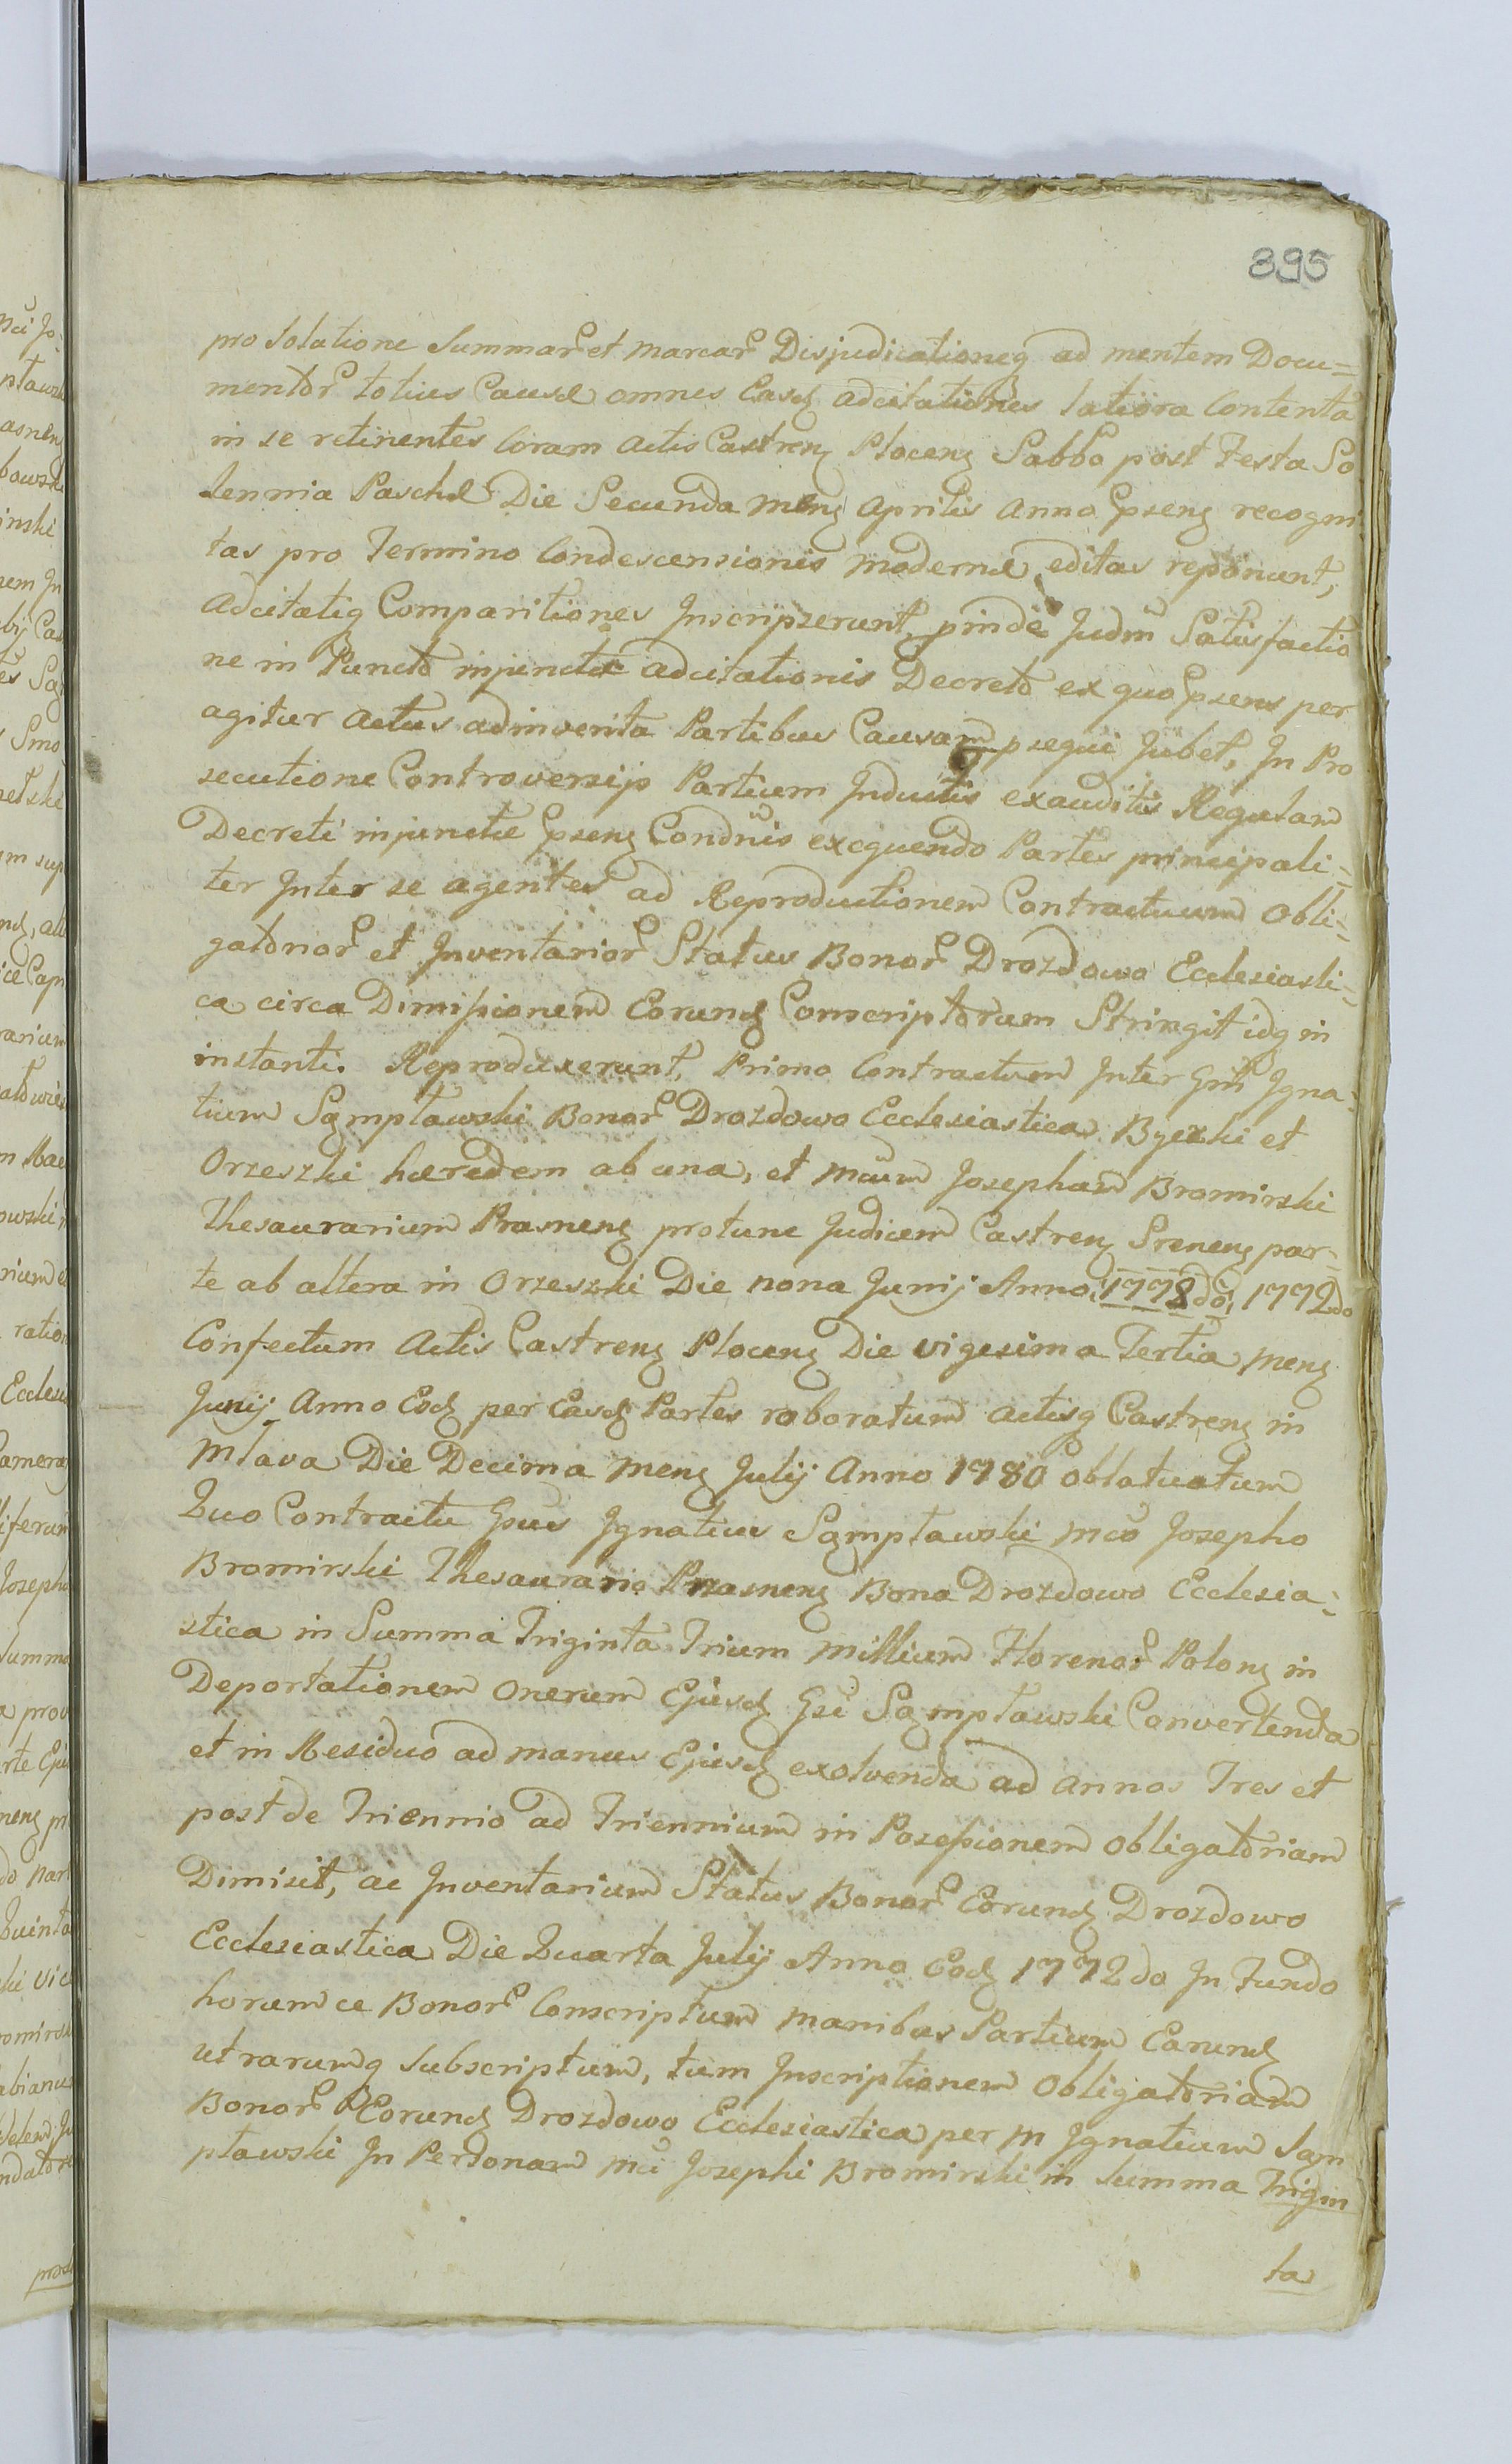 395
pro Solutione Summar et marcar Disjudicationeq ad mentem Docu=
mentor totius Causæ omnes Easd adcitationes latiora Contenta
in se retinentes Coram Actis Castren Plocen Sabbo post Festa So
lennia Paschæ Die Secunda Men Aprilis Anno Epsen recogni
tas pro Termino Condescensionis modernæ editas reponunt,
Adcitatiq Comparitiones Inscripserunt, pinde Judm Satisfactio
ne in Puncto injunctæ adcitationis Decreto ex quo Epsens per
agitur Actus adinventa Partibus Causam psequi Jubet, In Pro
secutione Controversijs Partium Inductis exauditis Regulam
Decreti injunctæ Epsen Condnis exequendo Partes principali=
ter Inter se agentes ad Reproductionem Contractuum Obli=
gatonor et Inventarior Status Bonor Drozdowo Ecclesiasti=
ca circa Dimissionem Eorund Conscriptorum Stringit idq in
instanti. Reproduxerunt, Primo Contractum Inter Gm Igna=
tium Sampławski Bonor Drozdowo Ecclesiastica Byezki et
Orzeszki hæredem ab una, et Mcum Josephum Bromirski
Thesaurarium Prasnen protunc Judicem Castren Srenen par=
te ab altera in Orzeszki Die nona Junij Anno 1778do, 1772do
Confectum Actis Castren Plocen Die vigesima Tertia Men
Junij Anno Eod per Easd Partes roboratum actisq Castren in
Mlava Die Decima Men Julij Anno 1780 oblatuatum
Quo Contractu Gsus Ignatius Sampławski Mco Josepho
Bromirski Thesaurario Prasnen Bona Drozdowo Ecclesia=
stica in Summa Triginta Trium Millium Florenor Polon in
Deportationem onerum Ejusd Gsi Sampławski Convertenda
et in Residuo ad manus Ejusd exolvenda ad Annos Tres et
post de Triennio ad Triennium in Possessionem obligatoriam
Dimisit, ac Inventarium Status Bonor Eorund Drozdowo
Ecclesiastica Die Quarta Julij Anno Eod 1772do In Fundo
horumce Bonor Conscriptum manibus Partium Earund
utrarumq Subscriptum, tum Inscriptionem Obligatoriam
Bonor Eorund Drozdowo Ecclesiastica per M Ignatium Sam
pławski In Personam Mci Josephi Bromirski in Summa Trigin
ta